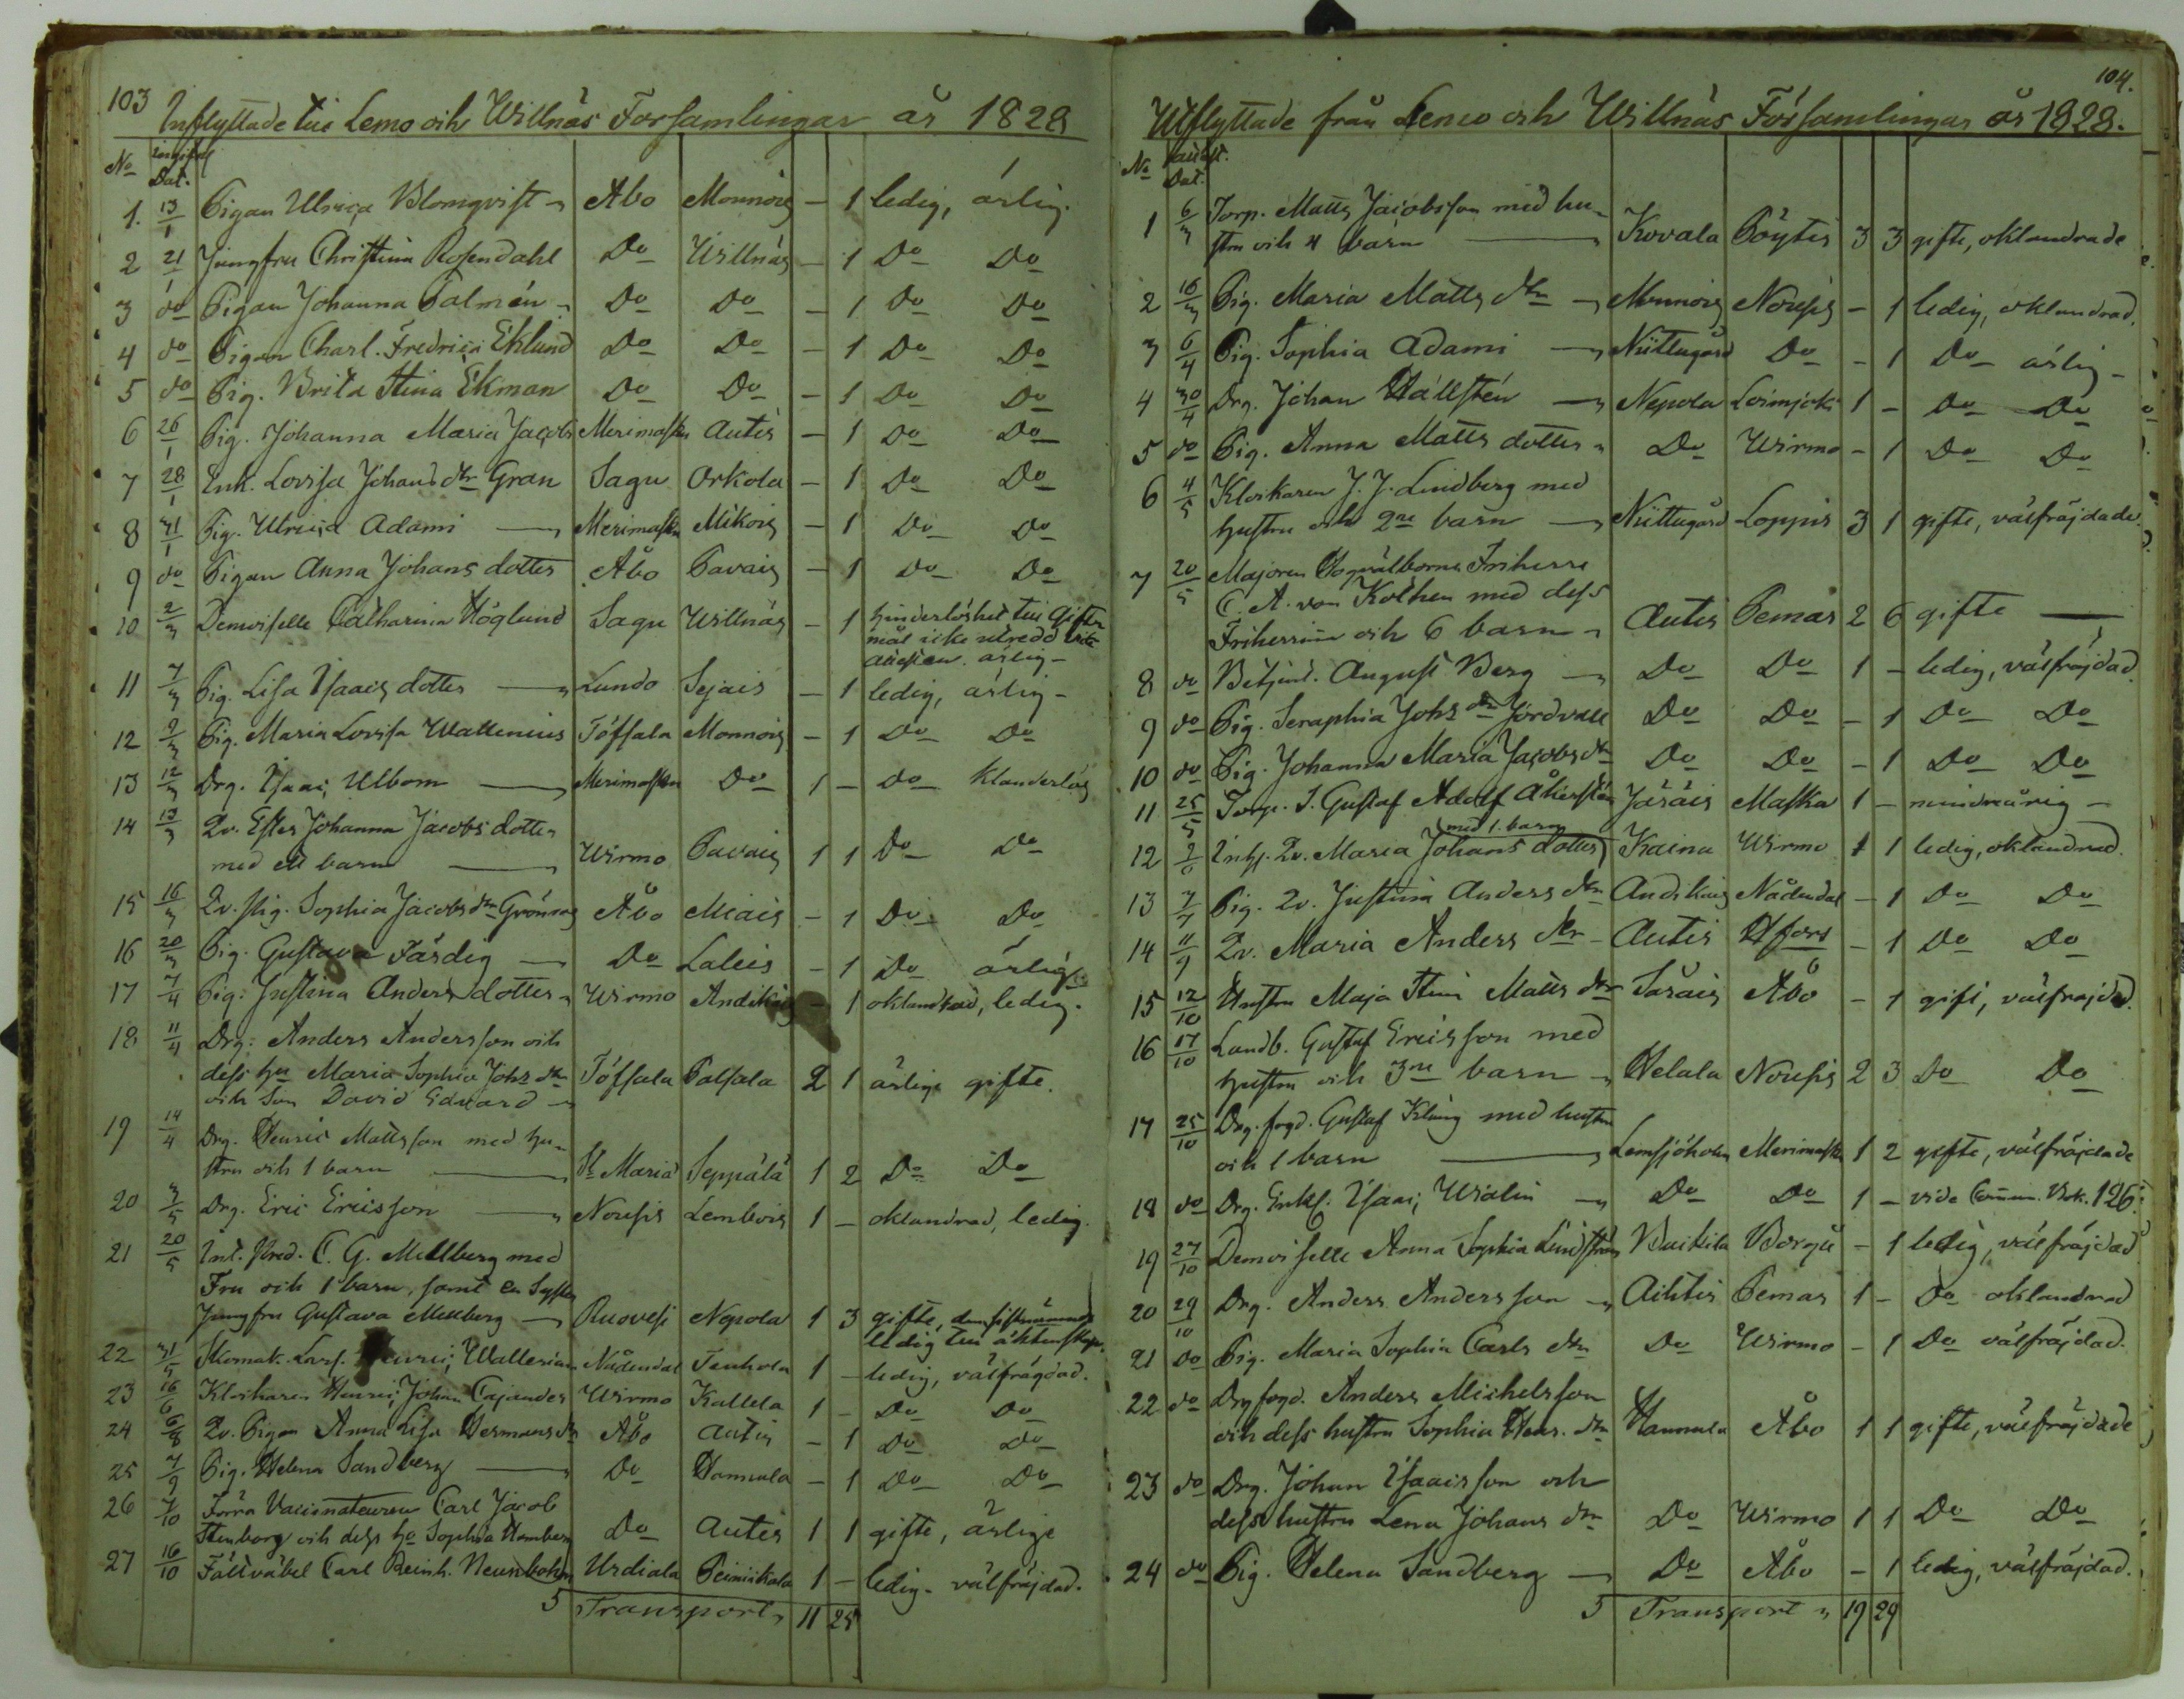 103
Inflyttade till Lemo och Willnäs Församlingar år 1828
No Dat.
1. 13/1 Pigan Ulrica Blomqvist Åbo Monnois - 1 ledig, ärlig.
2 21/1 Jungfru Christina Rosendahl Do Willnäs - 1 Do Do
3 do Pigan Johanna Palmén Do Do - 1 Do Do
4 do Pigan Charl. Fredrica Eklund Do Do - 1 Do Do
5 do Pig. Brita Stina Ekman Do Do - 1 Do Do
6 26/1 Pig. Johanna Maria Jacobs Merimasku Autis - 1 Do Do
7 28/1 Enk. Lovisa Johans dtr Gran Sagu Orkola - 1 Do Do
8 31/1 Pig. Ulrica Adami Merimasku Mikois - 1 Do Do
9 do Pigan Anna Johans dotter Åbo Pavais - 1 Do Do
10 2/3 Demoiselle Catharina Höglund Sagu Willnäs - 1 hinderlöshet till Gifter
mål icke utredd
ärlig -
11 7/3 Pig. Lisa Isaacs dotter Lundo Sejais - 1 ledig, ärlig -
12 9/3 Pig. Maria Lovisa Wallenius Töfsala Monnois - 1 Do Do
13 12/3 Drg. Isaac Ulbom Merimasku Do 1 - Do klanderlös
14 13/3 Qv. Ester Johanna Jacobs dotter
med ett barn Wirmo Pavais 1 1 Do Do
15 16/3 Qv. pig. Sophia Jacobs dtr Grönroos Åbo Miais - 1 Do Do
16 20/3 Pig. Gustava Färdig Do Laleis - 1 Do ärlig
17 7/4 Pig. Justina Anders dotter Wirmo Andikais - 1 oklandrad, ledig.
18 11/4 Drg. Anders Andersson och
dess hu Maria Sophia Johs dtr Töfsala Palsala 2 1 ärlige gifte.
och Son David Edvard
19 14/4 Drg. Henric Mattsson med hu-
stru och 1 barn St Maria Seppälä 1 2 Do Do
20 3/5 Drg. Eric Ericsson Nousis Lembois 1 - oklandrad, ledig.
21 20/5 Int. Pred. C. G. Mellberg med
Fru och 1 barn, samt en Syster
Jungfru Gustava Mellberg Ruovesi Nepola 1 3 gifte, den sistnämnde
ledig till äktenskap.
22 31/5 Skomak. Lärl. Henric Wallerian Nådendal Tenhola 1 - ledig, välfrägdad.
23 16/6 Klockaren Henric Johan Cajander Wirmo Kallela 1 - Do Do
24 6/8 Qv. Pigan Anna Lisa Hermans dr Åbo Autis - 1 Do Do
25 7/9 Pig. Helena Sandberg Do Hannula - 1 Do Do
26 7/10 Förra Vaccinateuren Carl Jacob
Stenborg och dess ho Sophia Homberg Do Autis 1 1 gifte, ärlige
27 16/10 Fältväbel Carl Reinh. Neunbohm Urdiala Peimikala 1 - ledig - välfräjdad.
Transport 11 25
104.
Utflyttade från Lemo och Willnäs Församlingar år 1828.
No Dat.
1 6/3 Torp. Matts Jacobsson med hu-
stru och 4 barn Kovala Pöytis 3 3 gifte, oklandrade
2 16/3 Pig. Maria Matts dtr Monnois Nousis - 1 ledig, oklandrad.
3 6/4 Pig. Sophia Adami Niittugård Do - 1 Do ärlig -
4 30/4 Drg. Johan Hällstén Nepola Loimjoki 1 - Do Do
5 do Pig. Anna Matts dotter Do Wirmo - 1 Do Do
6 4/5 Klockaren J. J. Lindberg med
hustru och 2ne barn Niittugård Loppis 3 1 gifte, välfräjdade.
7 20/5 Majoren Högvälborne Friherre
C. A. von Kothen med dess
Friherrinna och 6 barn Autis Pemar 2 6 gifte
8 do Betjent. August Berg Do Do 1 - ledig, välfräjdad.
9 do Pig. Seraphia Johs dtr Jordvall Do Do - 1 Do Do
10 do Pig. Johanna Maria Jacobs dtr Do Do - 1 Do Do
11 25/5 Torp. S. Gustaf Adolf Åkerstén Järäis Masku 1 - minderårig -
med 1. barn
12 2/6 Inhs. Qv. Maria Johans dotter Kaina Wirmo 1 1 ledig, oklandrad.
13 7/7 Pig. Qv. Justina Anders dtr Andikais Nådendal - 1 Do Do
14 11/9 Qv. Maria Anders dtr Autis Hfors - 1 Do Do
15 12/10 Hustru Maja Stina Matts dtr Saräis Åbo - 1 gift, välfräjdad.
16 17/10 Landb. Gustaf Ericsson med
hustru och 3ne barn Helala Nousis 2 3 Do Do
17 25/10 Drg. fogd. Gustaf Kling med hustru
och 1 barn Lemsjöholm Merimasku 1 2 gifte, välfräjdade
18 do Drg. Enkl. Isaac Widlin Do Do 1 - vide Comm. Bok. 126.
19 27/10 Demoiselle Anna Sophia Lindström Buikila Borgå - 1 ledig, välfräjdad
20 29/10 Drg. Anders Andersson Autis Pemar 1 - Do oklandrad
21 do Pig. Maria Sophia Carls dtr Do Wirmo - 1 Do välfräjdad.
22 do Drg fogd. Anders Michelsson
och dess hustru Sophia Henr. dtr Hannula Åbo 1 1 gifte, välfräjdade
23 do Drg. Johan Isaacsson och
dess hustru Lena Johans dtr Do Wirmo 1 1 Do Do
24 do Pig. Helena Sandberg Do Åbo - 1 ledig, välfräjdad.
Transport 19 29